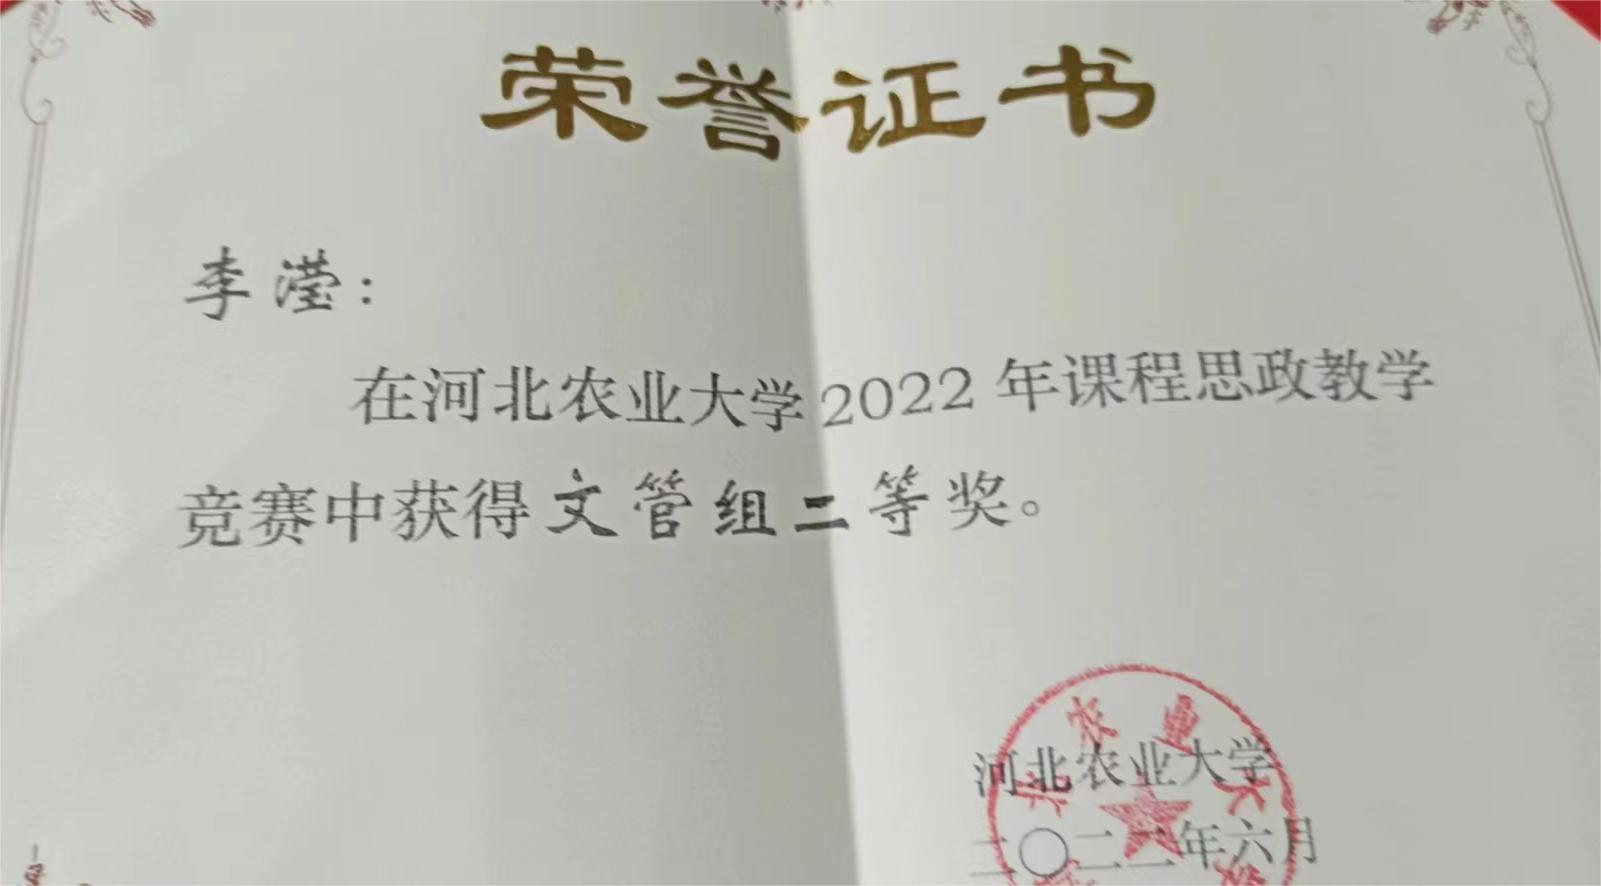 荣誉证书
李滢：
在河北农业大学2022年课程思政教学
竞赛中获得文管组二等奖。
河北农业大学
二〇二二年六月